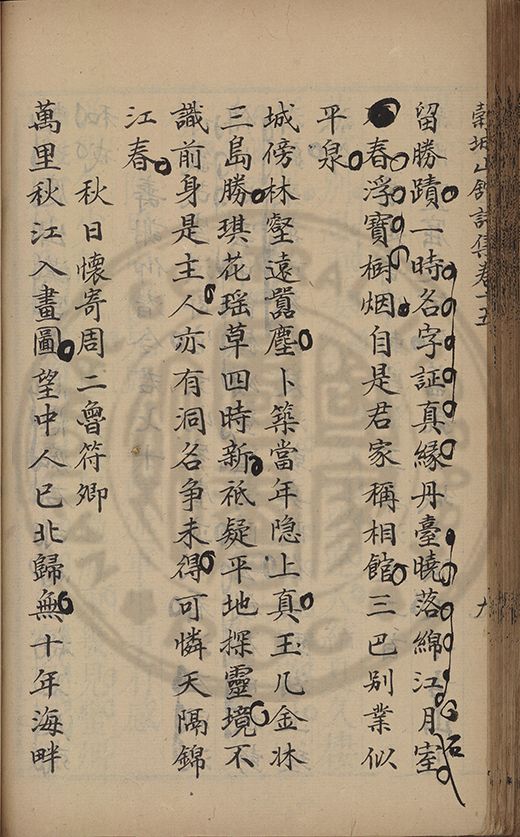 穀城山館詩集卷十五
九
留勝蹟一時名字証真緣丹臺曉落綿江月室
石
春浮寶樹烟自是君家稱相館三巴別業似
平泉
城傍林壑遠囂塵卜築當年隐上真玉几金牀
三島勝琪花瑶草四時新祇疑平地探靈境不
識前身是主人亦有洞名争未得可憐天隔錦
江春
秋日懷寄周二魯符卿
萬里秋江入畫圖望中人已北歸無十年海畔